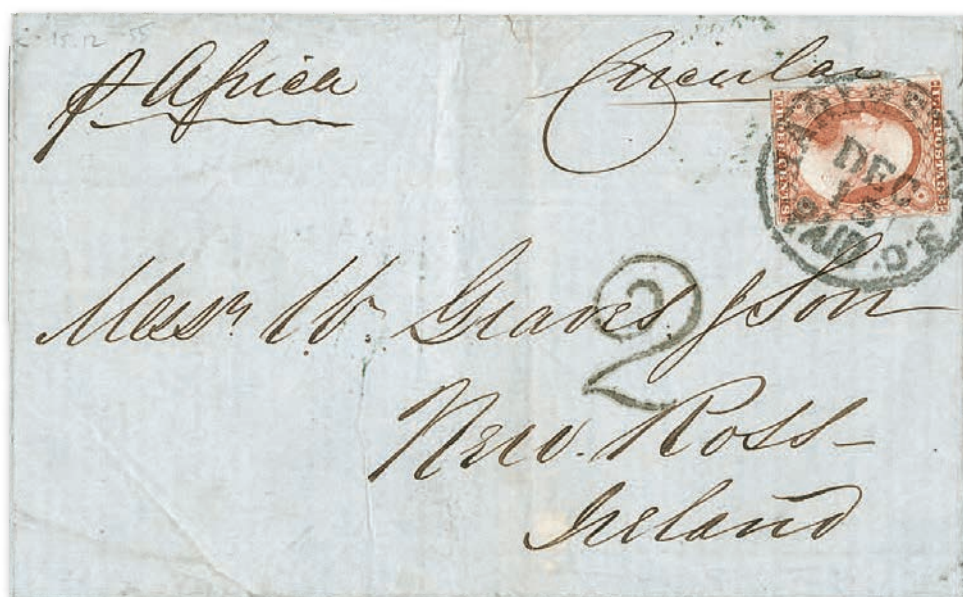 15.12 55
p Africa
Circular
DEC
15
PAID
S.C.
2
Messrs W. Graves & Son
New. Ross
Ireland